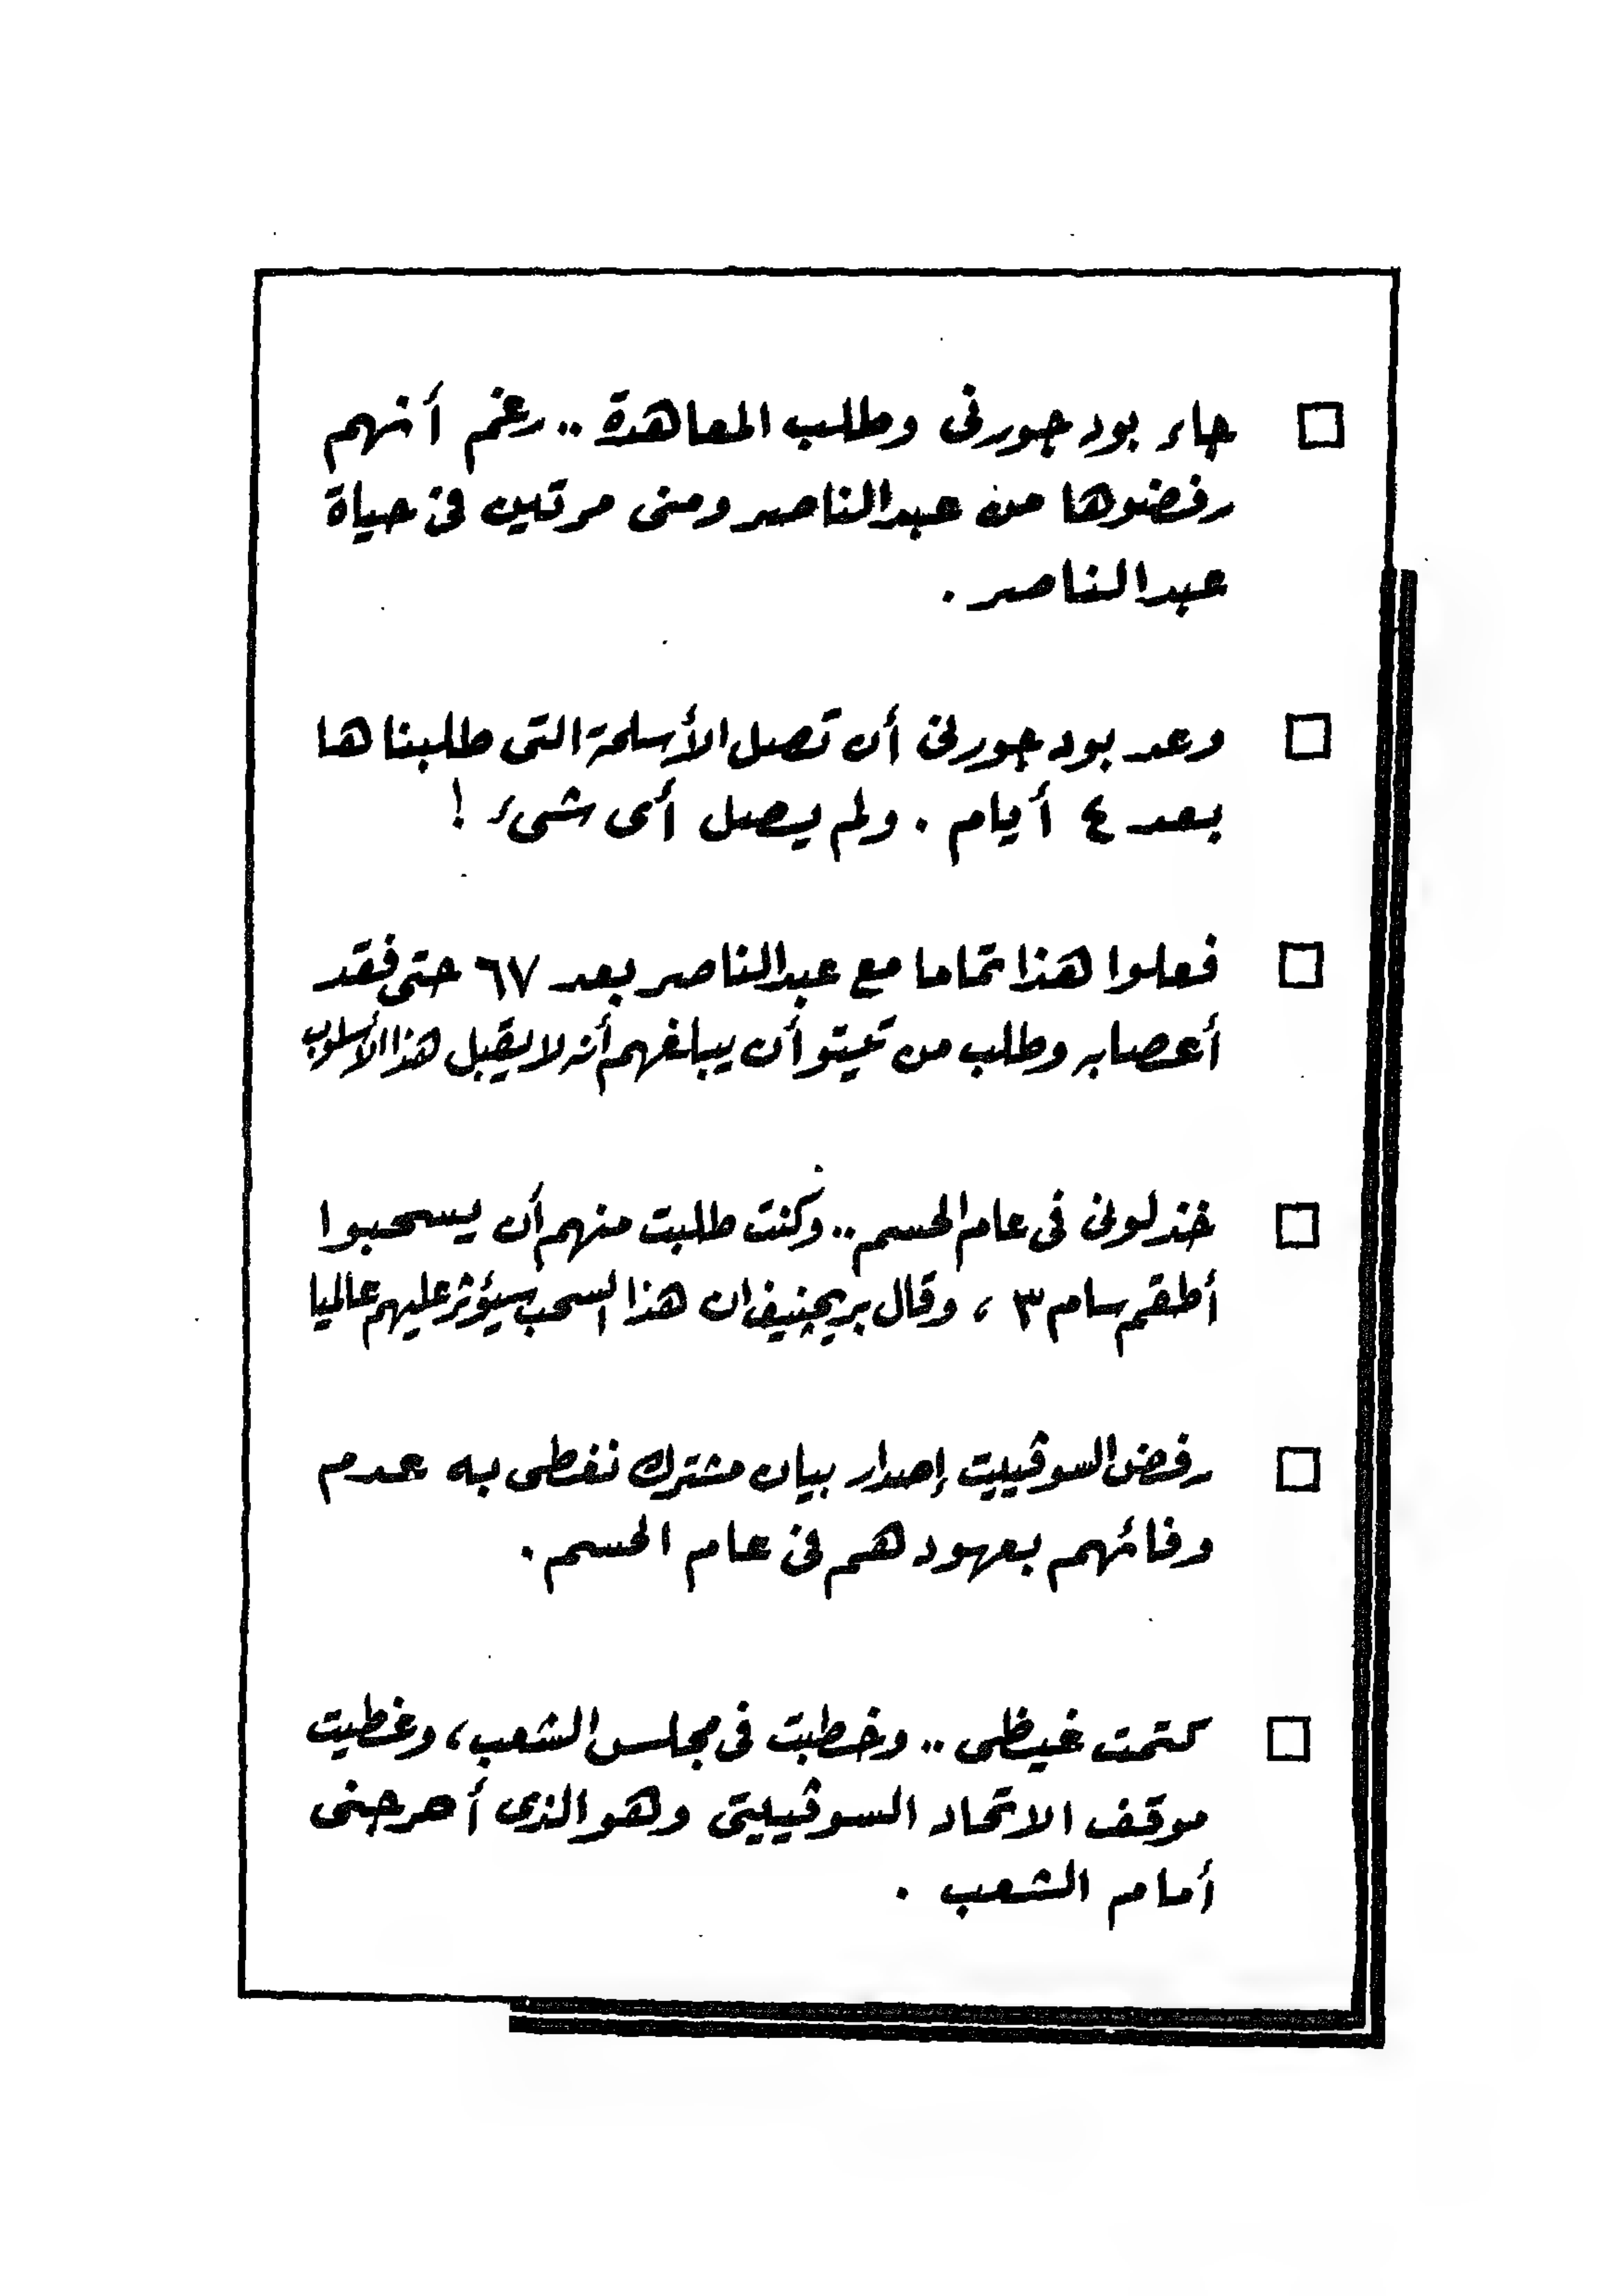 □ جاء بود جورنى وطلب المعاهدة .. رغم أنهم
رفضوها من عبدالناصر ومنى مرتين فى حياة
عبدالناصر .
□ وعد بود جورنى أن تصل الأسلحة التى طلبناها
بعد ٤ أيام . ولم يصل أى شىء !
□ فعلوا هذا تماما مع عبدالناصر بعد ٦٧ حتى فقد
أعصابه وطلب من تيتو أن يبلغهم أنه لا يقبل هذا الأسلوب
□ خذلونى فى عام الحسم .. وكنت طلبت منهم أن يسحبوا
أطقم سام ٣ ، وقال بريجنيف ان هذا السحب سيؤثر عليهم عالميا
□ رفض السوڤييت إصدار بيان مشترك نغطى به عدم
وفائهم بعهودهم فى عام الحسم .
□ كتمت غيظى .. وخطبت فى مجلس الشعب ، وغطيت
موقف الاتحاد السوڤييتى وهو الذى أحرجنى
أمام الشعب .